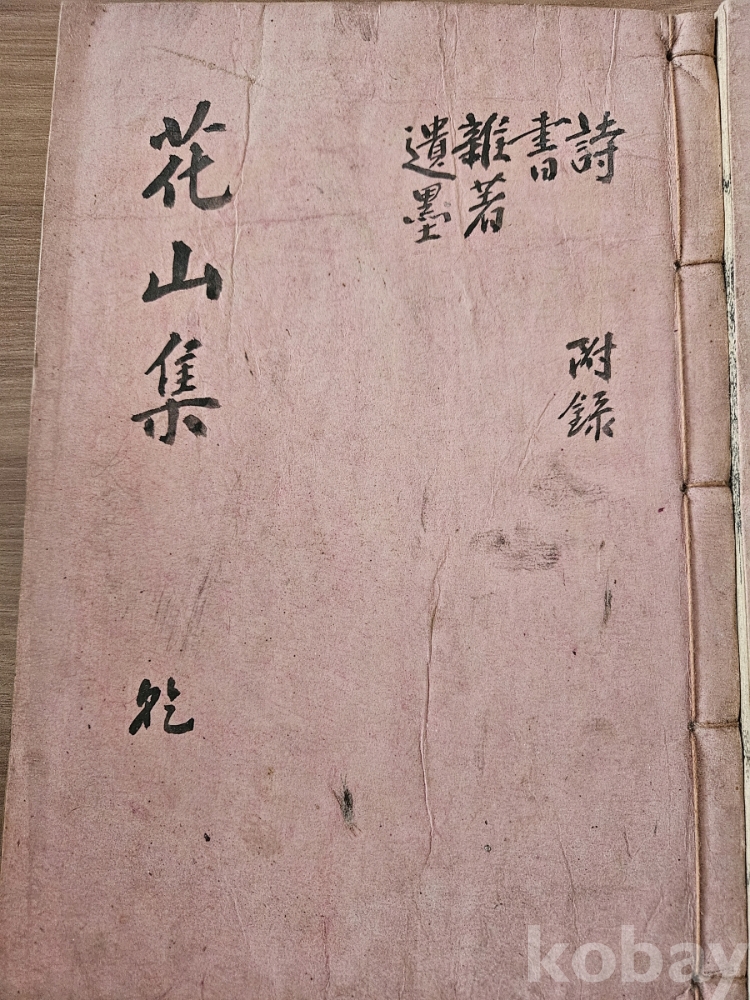 詩
書
雜著
遺墨
附録
花山集
乾
kobay